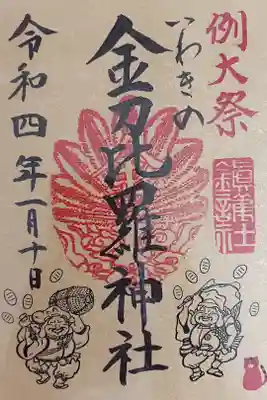 例大祭
いわきの
金刀比羅神社
令和四年一月十日